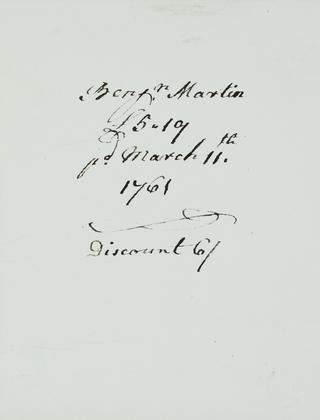 Benjn Martin
£5-19
pd March 11.th
1761
Discount 6/